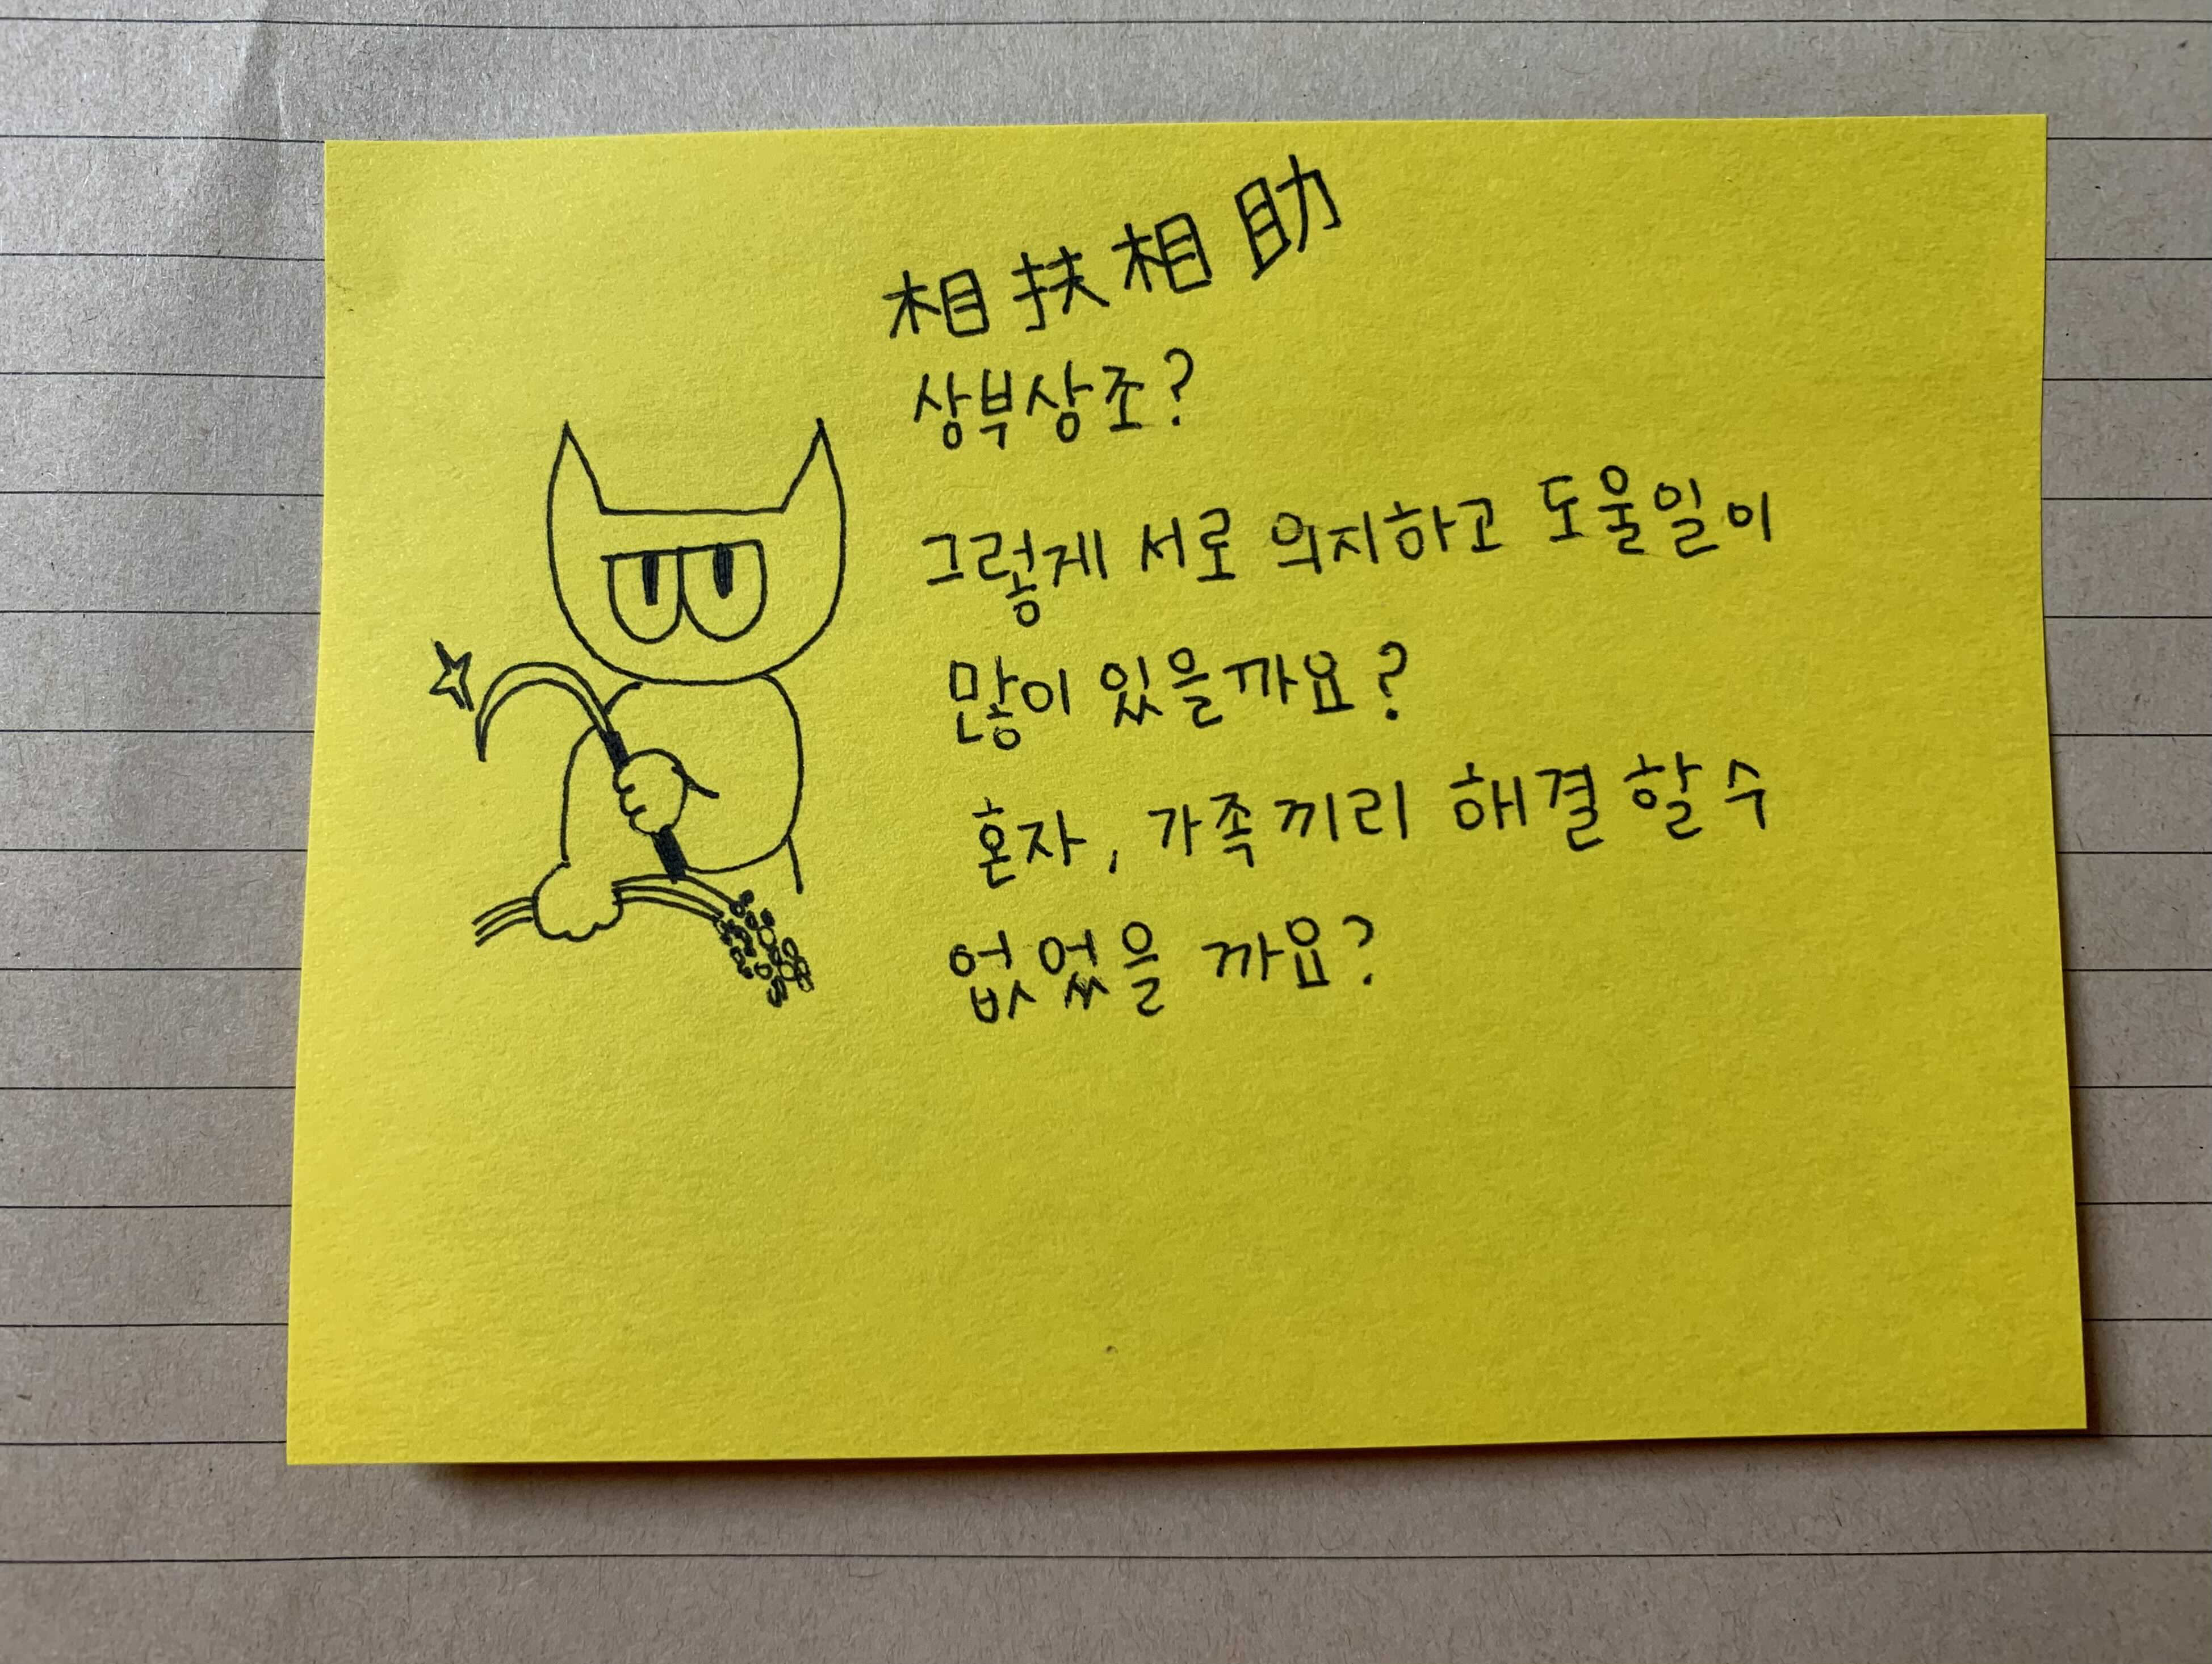 相扶相助
상부상조?
그렇게 서로 의지하고 도울일이
많이 있을까요?
혼자, 가족끼리 해결할수
없었을 까요?